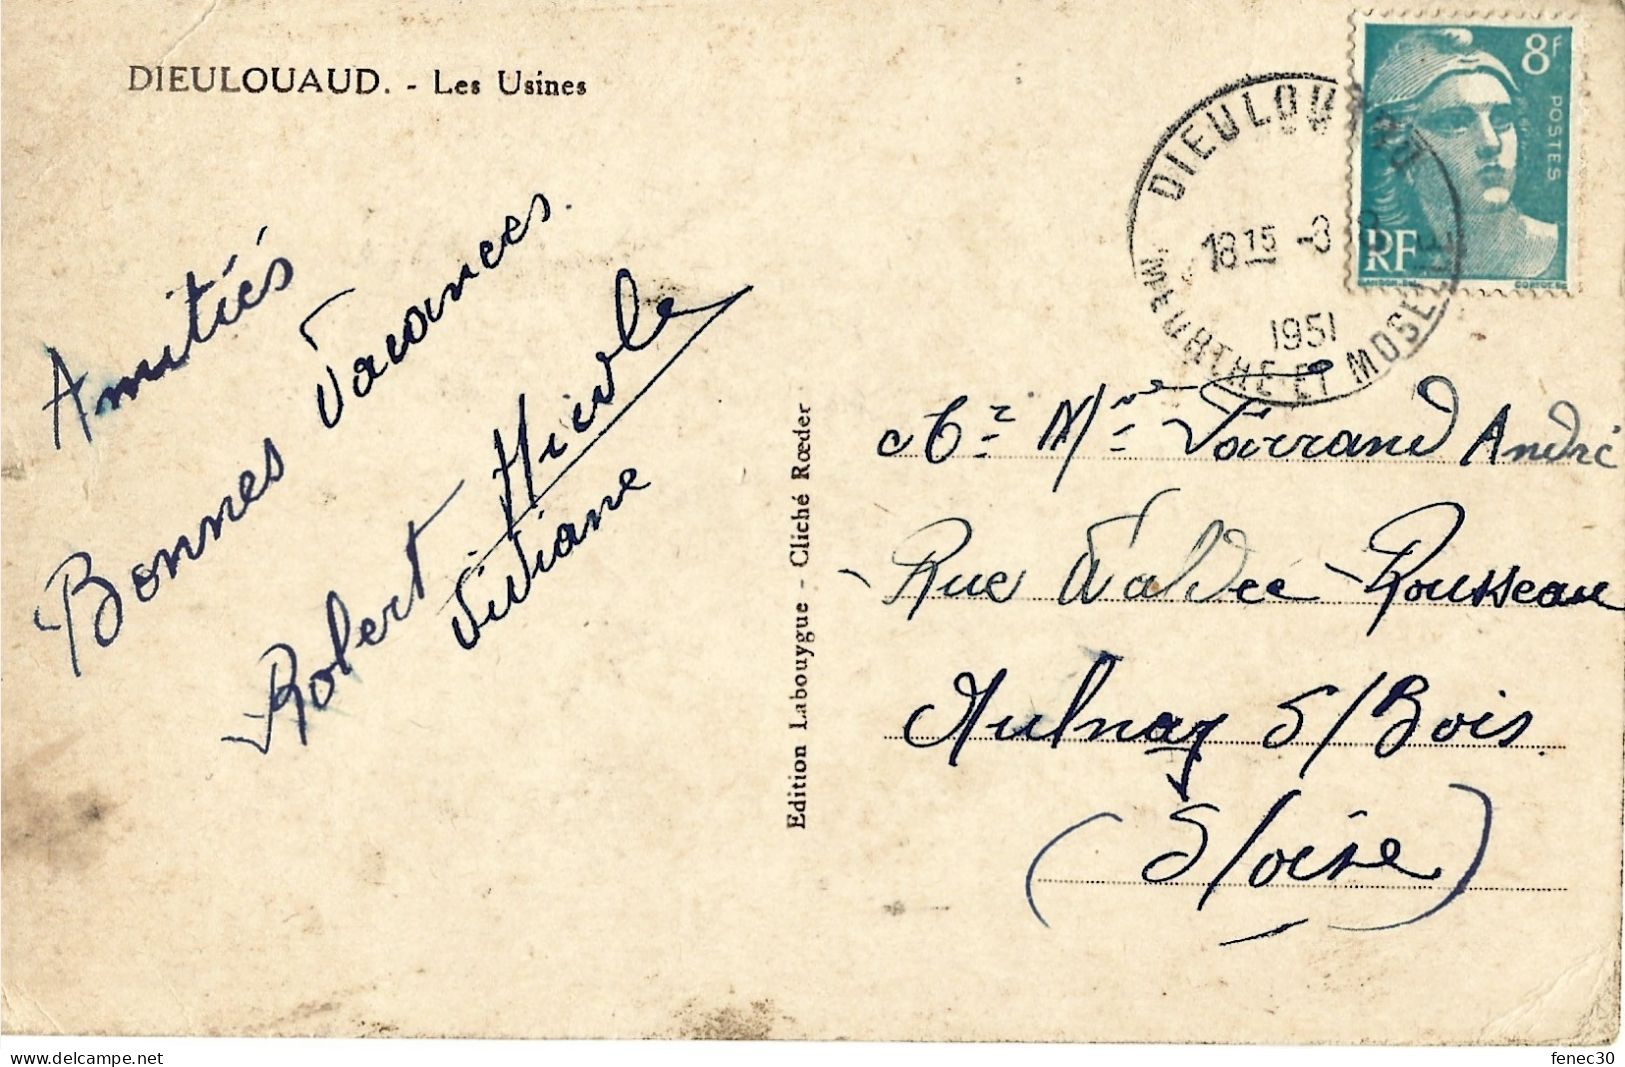 DIEULOUAUD. - Les Usines
8F
POSTES
RF
DIEULOUARD
18 15 -8
1951
MEURTHE ET MOSELLE
Amitiés
Bonnes Vacances.
Robert Nicole
Viviane
Edition Labouygue - Cliché Rœder
Mr Mme Varrand André
Rue Waldec-Rousseau
Aulnay S/Bois.
(S/oise)
www.delcampe.net
fenec30